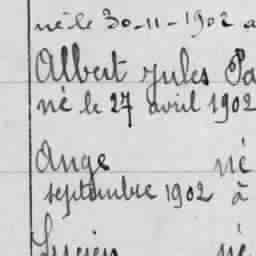 né le 30-11-1902 a
Albert Jules Pa
né le 27 avril 1902
Ange né
septembre 1902 à
Lucien né